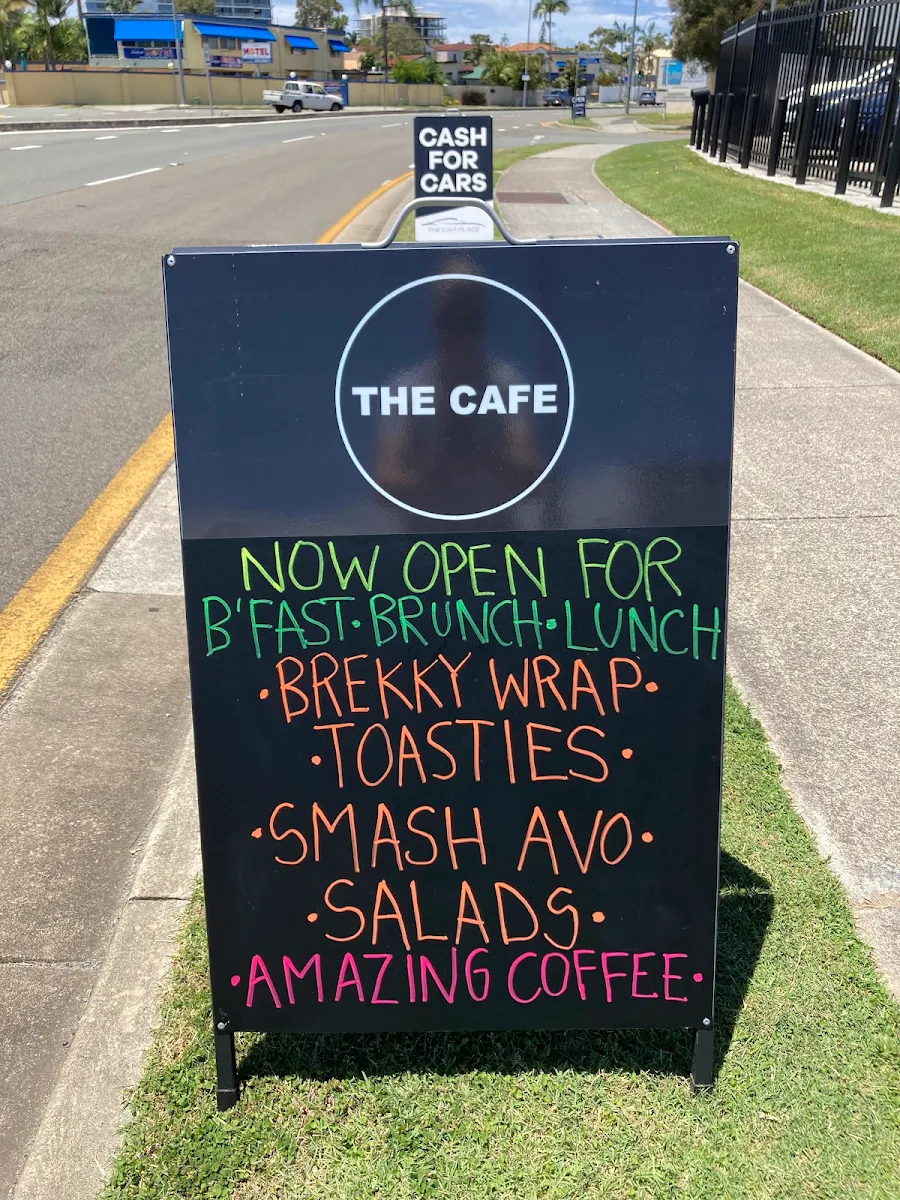 MOTEL
CASH
FOR
CARS
THE CAR PLACE
THE CAFE
NOW OPEN FOR
B'FAST • BRUNCH • LUNCH
• BREKKY WRAP •
• TOASTIES •
• SMASH AVO •
• SALADS •
• AMAZING COFFEE •